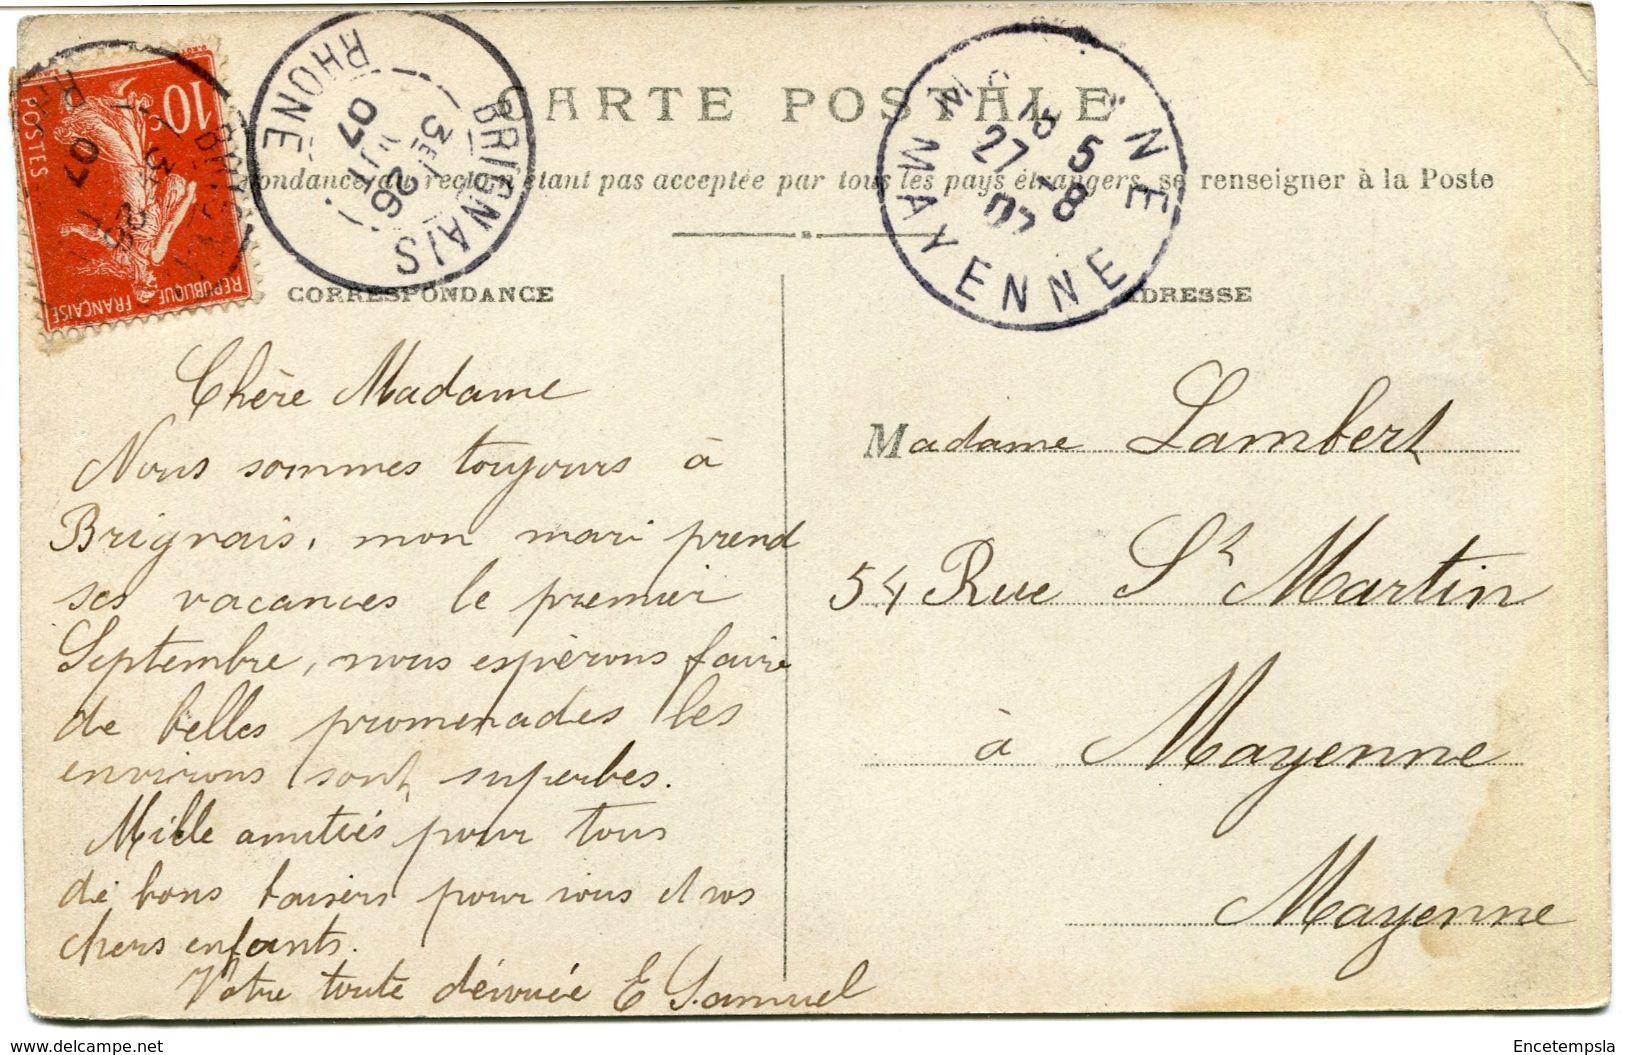 CARTE POSTALE
pondance au recto n'étant pas acceptée par tous les pays étrangers, se renseigner à la Poste
10
POSTES
REPUBLIQUE FRANÇAISE
BRIGNAIS
RHONE
3E
26
07
MAYENNE
MAYENNE
18 5
27 - 8
07
CORRESPONDANCE
Chère Madame
Nous sommes toujours à
Brignais, mon mari prend
ses vacances le premier
Septembre, nous espérons faire
de belles promenades les
environs sont superbes.
Mille amitiés pour tous
de bons baisers pour vous et vos
chers enfants.
Votre toute dévouée E Samuel
ADRESSE
Madame Lambert
54 Rue St Martin
à Mayenne
Mayenne
www.delcampe.net
Encetempsla